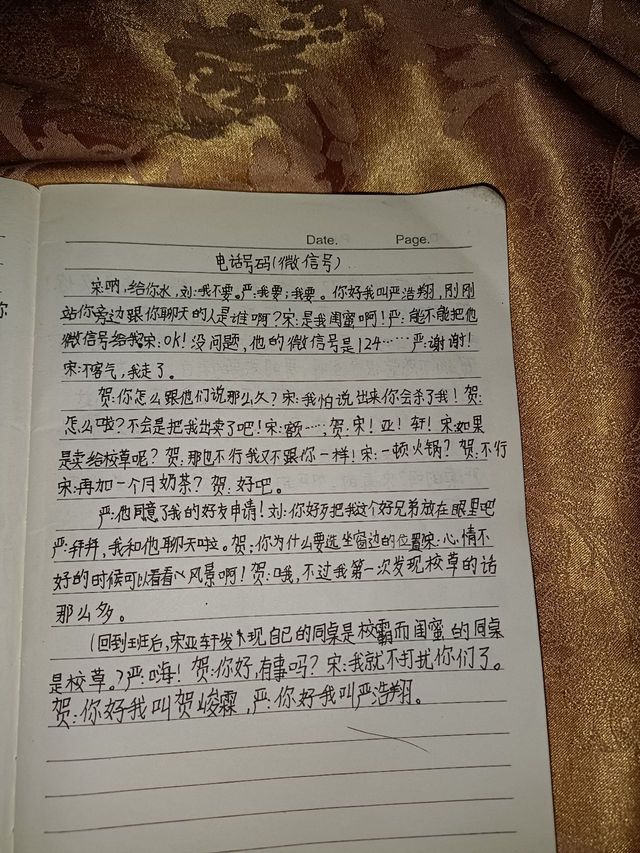 Date. Page.
电话号码(微信号)
宋:呐,给你水,刘:我不要。严:我要;我要。你好我叫严浩翔,刚刚
站你旁边跟你聊天的人是谁啊?宋:是我闺蜜啊!严:能不能把他
微信号给我宋:OK!没问题,他的微信号是124……严:谢谢!
宋:不客气,我走了。
贺:你怎么跟他们说那么久?宋:我怕说出来你会杀了我!贺:
怎么啦?不会是把我出卖了吧!宋:额…;贺:宋!亚!轩!宋:如果
是卖给校草呢?贺:那也不行我又不跟你一样!宋:一顿火锅?贺:不行
宋:再加一个月奶茶?贺:好吧。
严:他同意了我的好友申请!刘:你好歹把我这个好兄弟放在眼里吧
严:拜拜,我和他聊天啦。贺:你为什么要选坐窗边的位置宋:心情不
好的时候可以看看风景啊!贺:哦,不过我第一次发现校草的话
那么多。
(回到班后,宋亚轩发现自己的同桌是校霸而闺蜜的同桌
是校草。?严:嗨!贺:你好,有事吗?宋:我就不打扰你们了。
贺:你好我叫贺峻霖,严:你好我叫严浩翔。
你